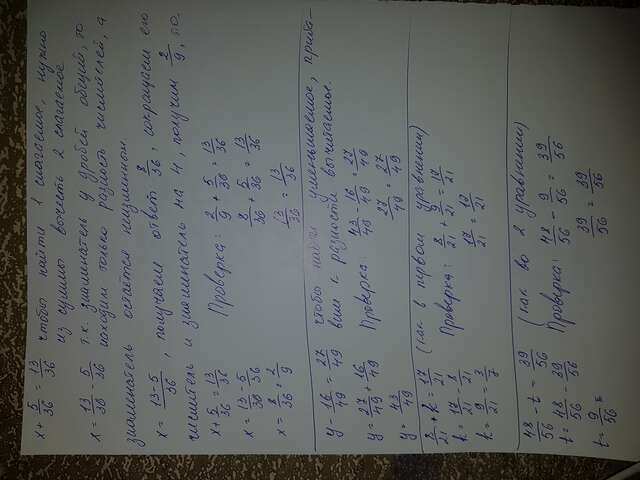 x + 5/36 = 13/36 чтобы найти 1 слагаемое, нужно
из суммы вычесть 2 слагаемое
x = 13/36 - 5/36 т.к. знаменатель у дробей общий, то
находим только разность числителей, а
знаменатель остаётся неизменным
x = 13-5/36, получаем ответ 8/36, сокращаем его
числитель и знаменатель на 4, получим 2/9, то.
x + 5/36 = 13/36 Проверка: 2/9 + 5/36 = 13/36
x = 13/36 - 5/36 8/36 + 5/36 = 13/36
x = 8/36 = 2/9 13/36 = 13/36
y - 16/49 = 27/49 чтобы найти уменьшаемое, приба-
вим к разности вычитаемое.
y = 27/49 + 16/49 Проверка: 43/49 - 16/49 = 27/49
y = 43/49 27/49 = 27/49
8/21 + k = 17/21 (как в первом уравнении)
k = 17/21 - 8/21 Проверка: 8/21 + 9/21 = 17/21
k = 9/21 = 3/7 17/21 = 17/21
48/56 - t = 39/56 (как во 2 уравнении)
t = 48/56 - 39/56 Проверка: 48/56 - 9/56 = 39/56
t = 9/56 39/56 = 39/56